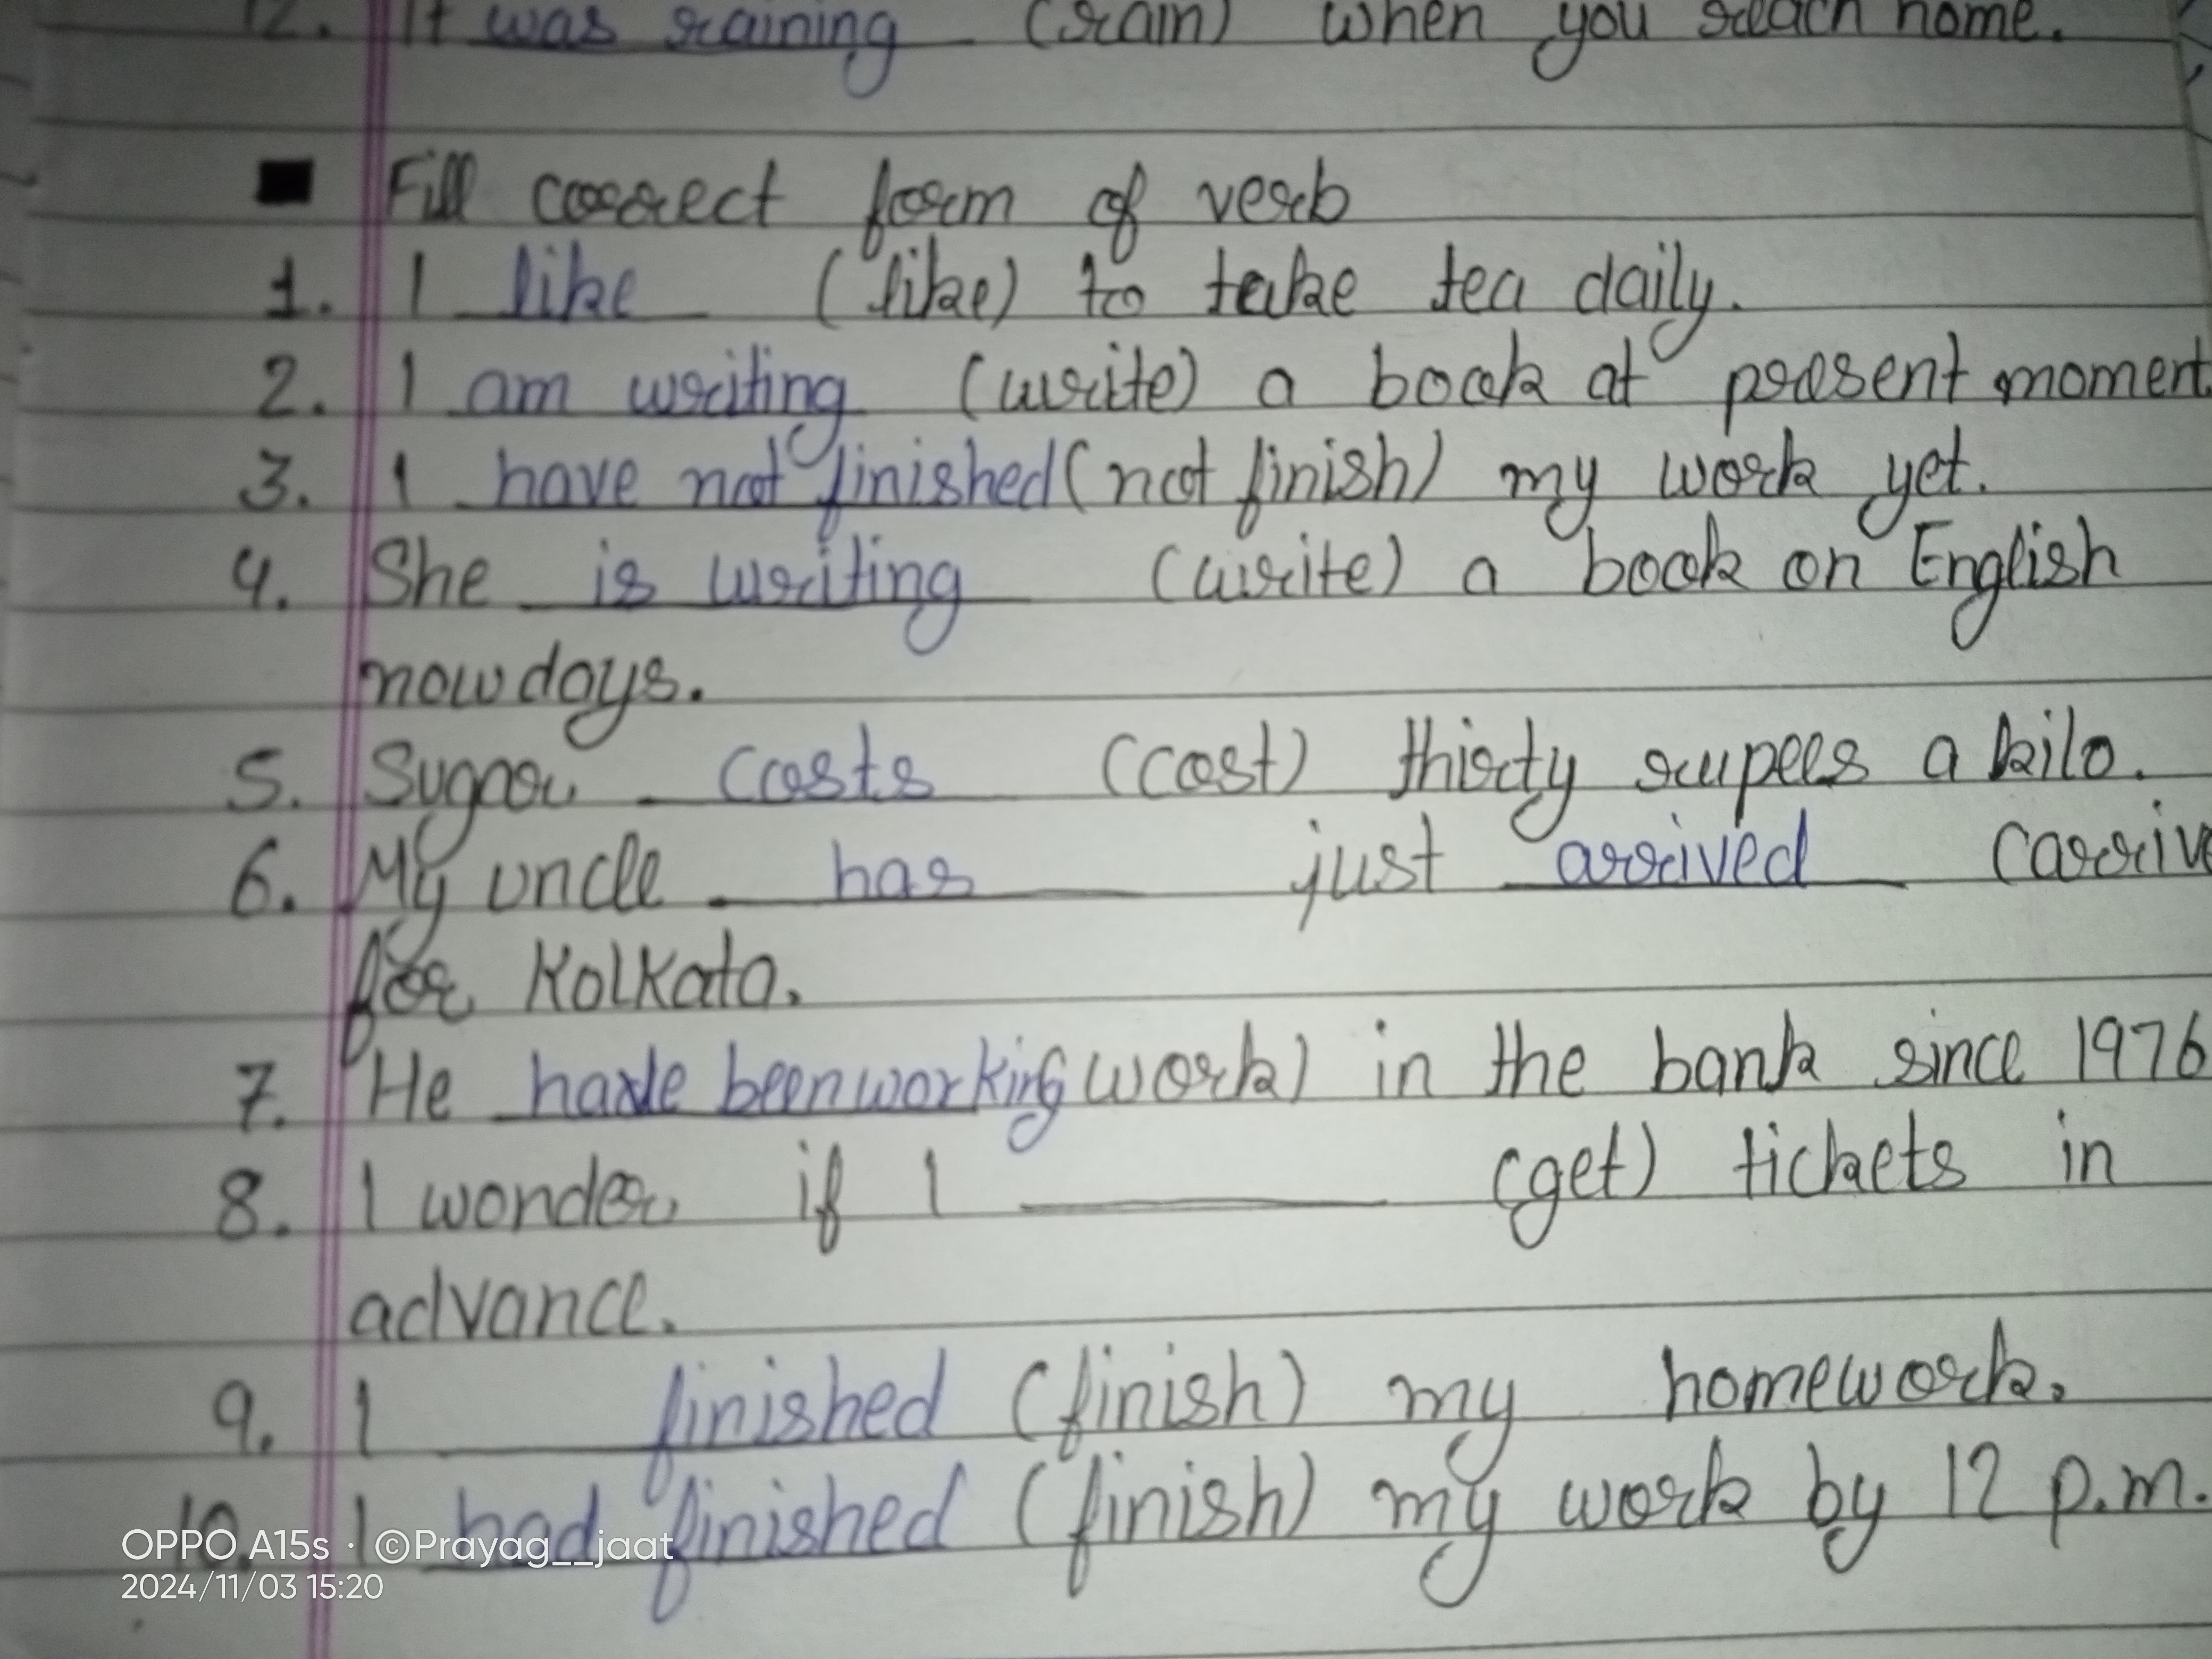 12. It was raining (rain) when you reach home.
■ Fill correct form of verb
1. I like (like) to take tea daily.
2. I am writing (write) a book at present moment
3. I have not finished (not finish) my work yet.
4. She is writing (write) a book on English
nowdays.
5. Sugar costs (cost) thirty rupees a kilo.
6. My uncle has just arrived (arrive
for Kolkata.
7. He have been working work) in the bank since 1976
8. I wonder if I ______ (get) tickets in
advance.
9. I finished (finish) my homework.
10. I had finished (finish) my work by 12 p.m.
OPPO A15s · ©Prayag__jaat
2024/11/03 15:20